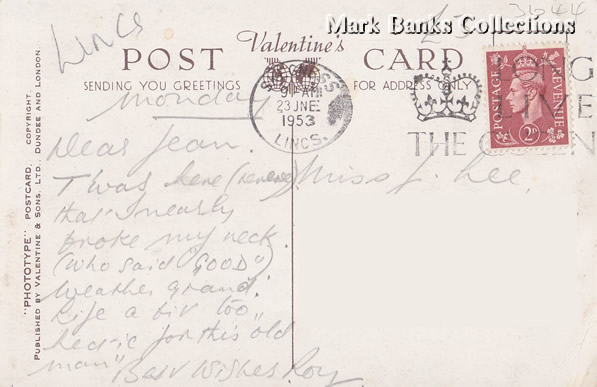 Mark Banks Collections
3644
Lincs
Valentine's
POST CARD
SENDING YOU GREETINGS
FOR ADDRESS ONLY
"PHOTOTYPE" POSTCARD. COPYRIGHT.
PUBLISHED BY VALENTINE & SONS, LTD., DUNDEE AND LONDON
SKEGNESS
9 - AM
23 JNE
1953
LINCS.
LONG
LIVE
THE QUEEN
POSTAGE REVENUE
2D
Monday
Dear Jean.
T'was here
that I nearly
broke my neck
(who said "GOOD")
Weather grand.
Life a bit too
hectic for this old
man" Best Wishes Roy
Miss J. Lee,